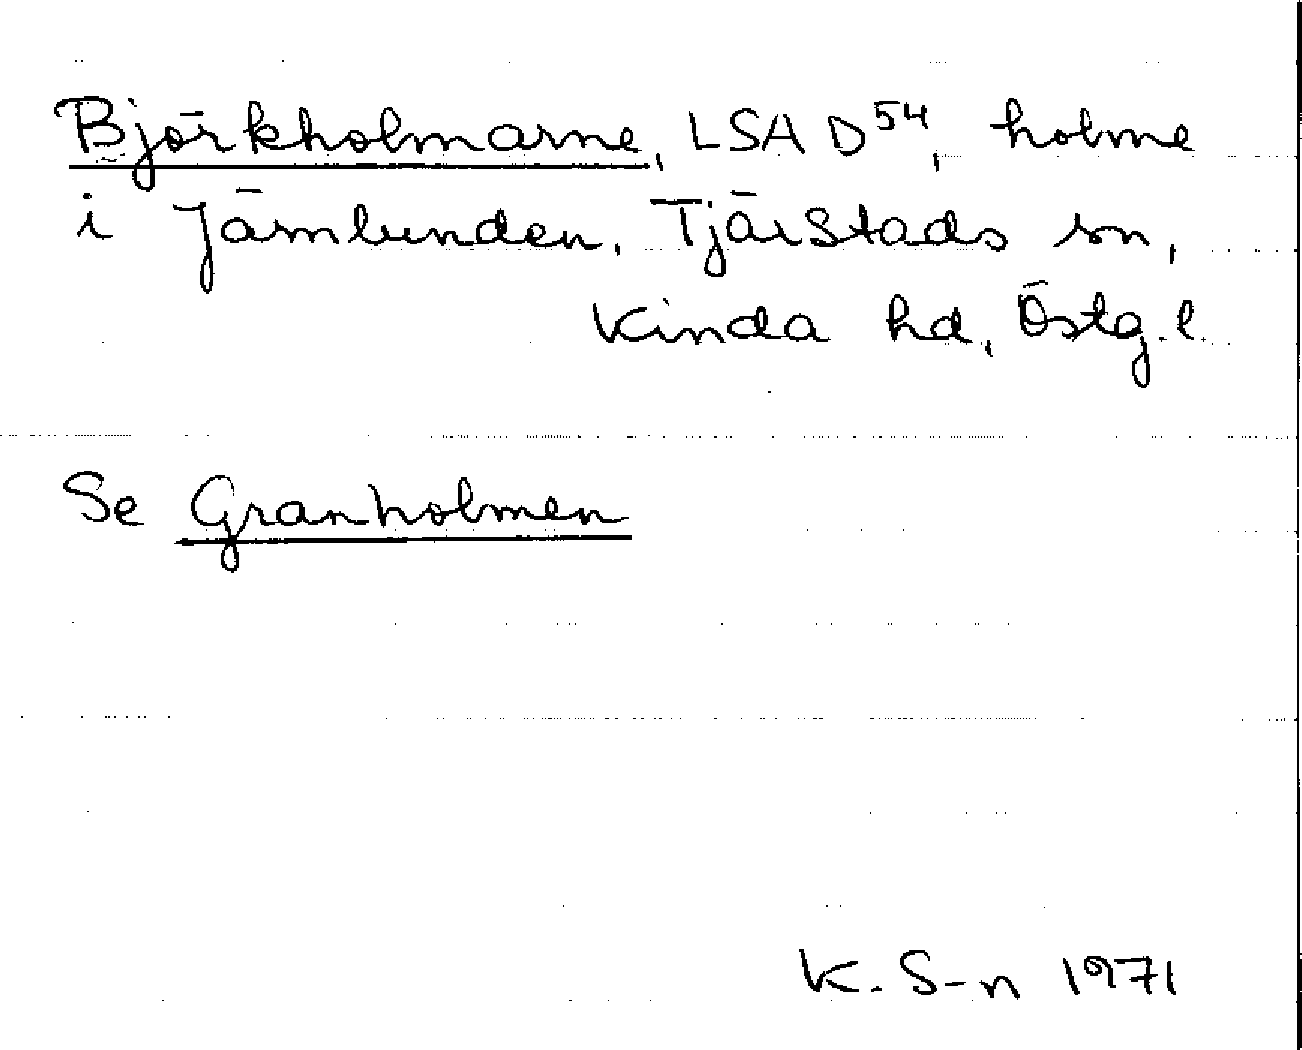 Björkholmarne, LSA D54, holme
i Jämlunden, Tjärstads sn,
Kinda hd, Östg.l.
Se Granholmen
K. S-n 1971